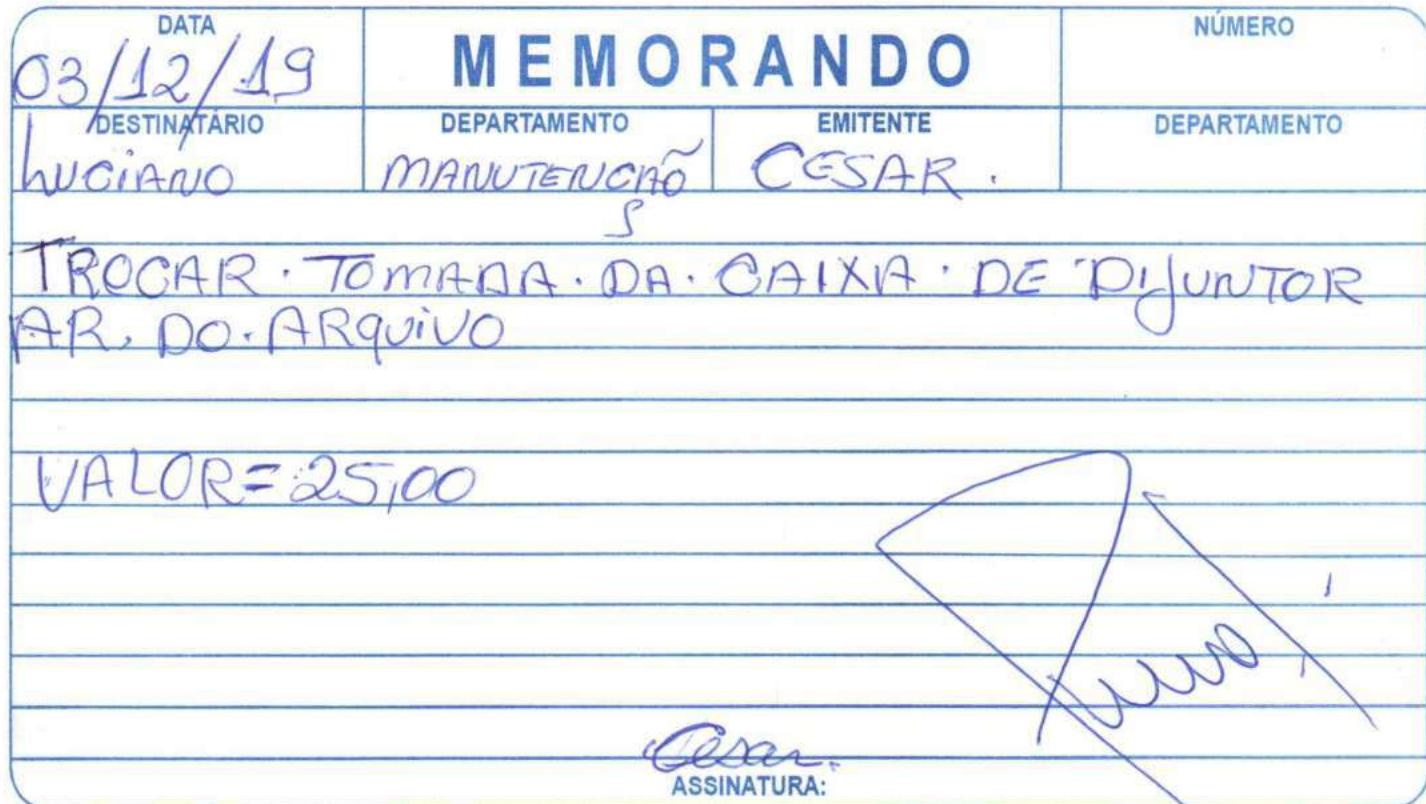 DATA
03/12/19
MEMORANDO
NÚMERO
DESTINATÁRIO
LUCIANO
DEPARTAMENTO
MANUTENÇÃO
EMITENTE
CESAR.
DEPARTAMENTO
TROCAR. TOMADA. DA. CAIXA. DE DIJUNTOR
AR. DO. ARQUIVO
VALOR= 25,00
Cesar.
ASSINATURA: